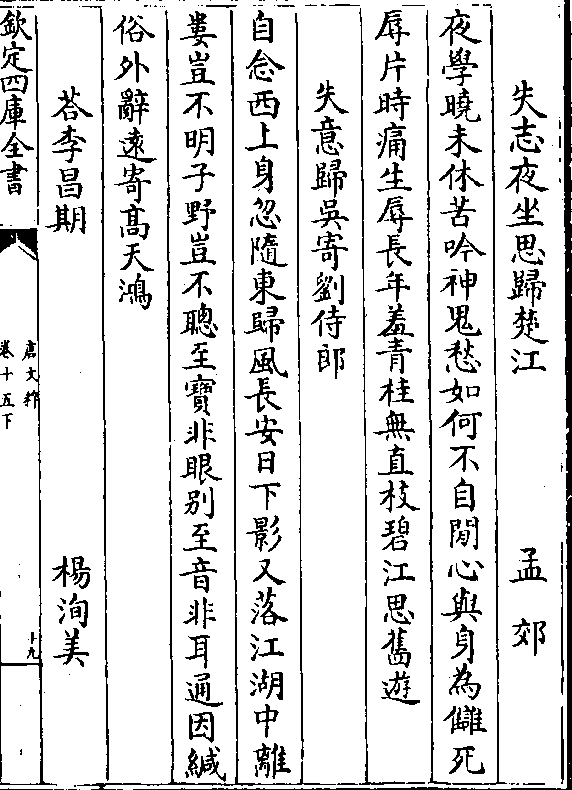 失志夜坐思歸楚江　孟郊
夜學曉未休苦吟神鬼愁如何不自閒心與身為讎死
辱片時痛生辱長年羞青桂無直枝碧江思舊遊
失意歸吳寄劉侍郎
自念西上身忽隨東歸風長安日下影又落江湖中離
婁豈不明子野豈不聰至寶非眼别至音非耳通因緘
俗外辭遠寄髙天鴻
荅李昌期　楊洵美
欽定四庫全書
唐文粹
卷十五下
十九